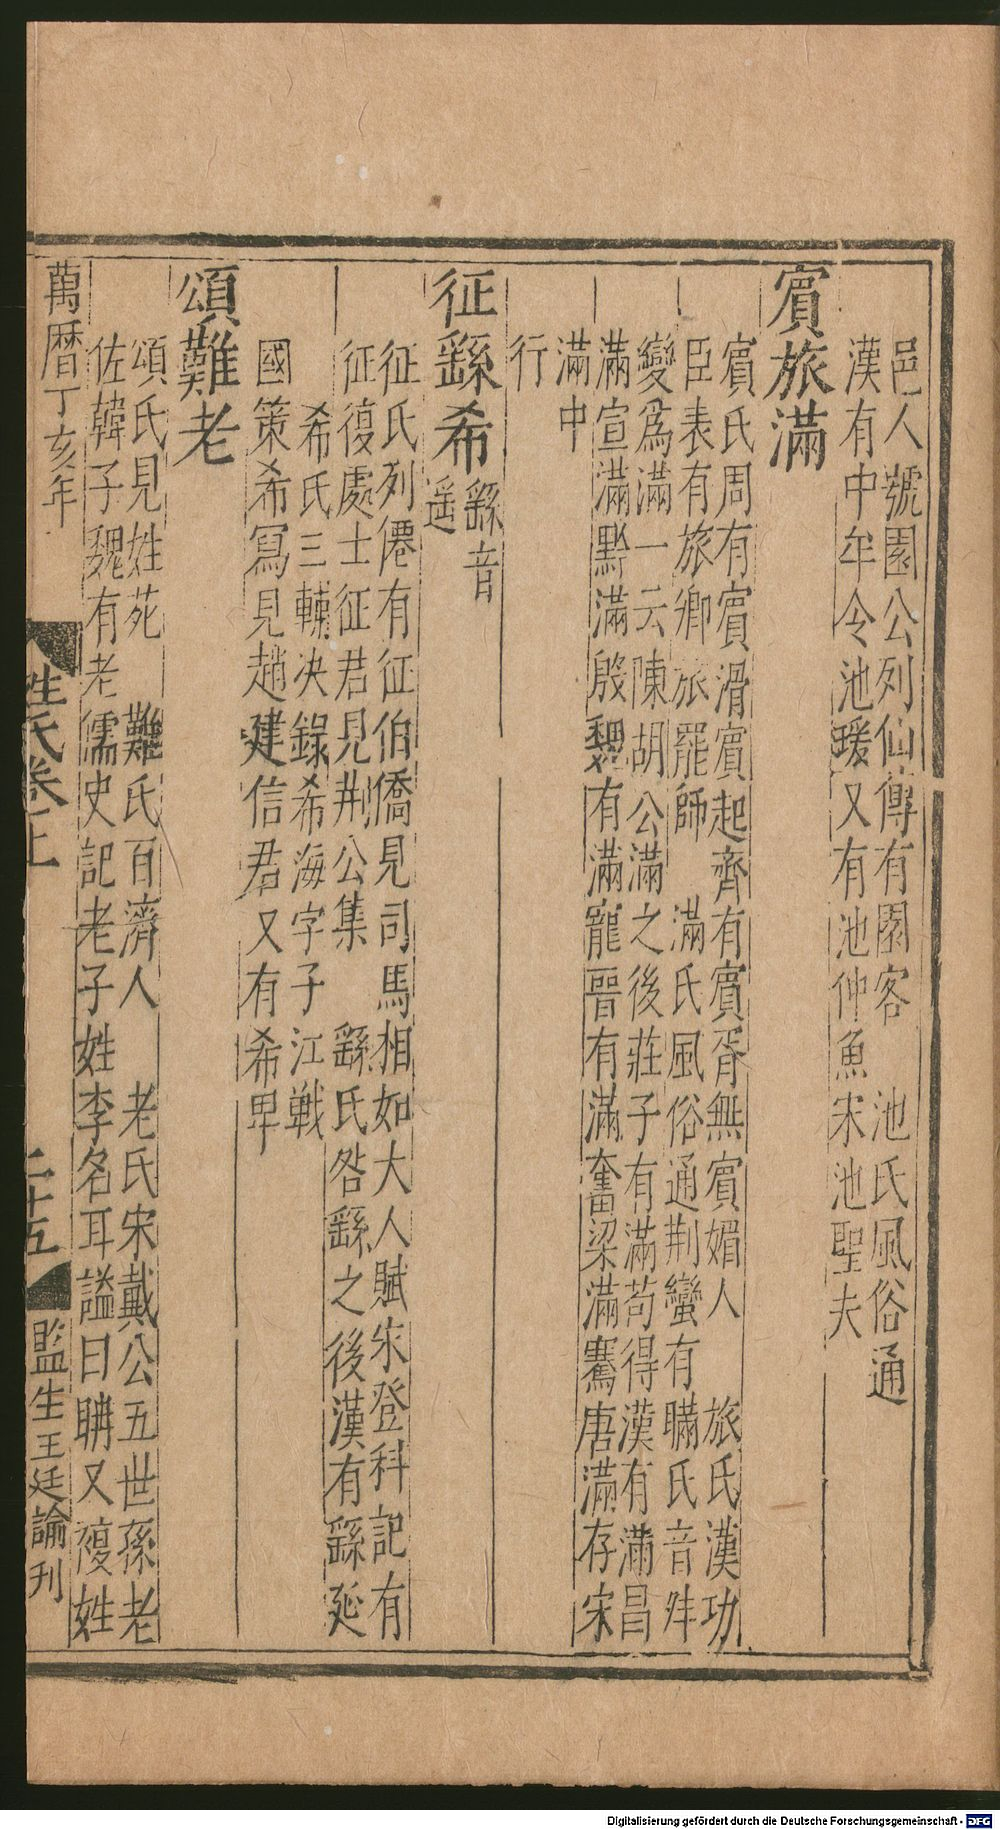 邑人號園公列仙傳有園客　池氏風俗通
漢有中牟令池瑗又有池仲魚宋池聖夫
賔旅滿
賔氏周有賔滑賔起齊有賔胥無賔媚人　旅氏漢功
臣表有旅卿旅罷師　滿氏風俗通荆蠻有瞞氏音舛
變爲滿一云陳胡公滿之後莊子有滿苟得漢有滿昌
滿宣滿黔滿殷魏有滿寵晋有滿奮梁滿騫唐滿存宋
滿中
行
征繇希繇音
遥
征氏列僊有征伯僑見司馬相如大人賦宋登科記有
征復處士征君見荆公集　繇氏咎繇之後漢有繇延
希氏三輔决録希海字子江戰
國策希寫見趙建信君又有希卑
頌難老
頌氏見姓苑　難氏百濟人　老氏宋戴公五世孫老
佐韓子魏有老儒史記老子姓李名耳謚曰聃又複姓
萬曆丁亥年
姓氏卷上
二十五
監生王廷諭刊
Digitalisierung gefördert durch die Deutsche Forschungsgemeinschaft - DFG